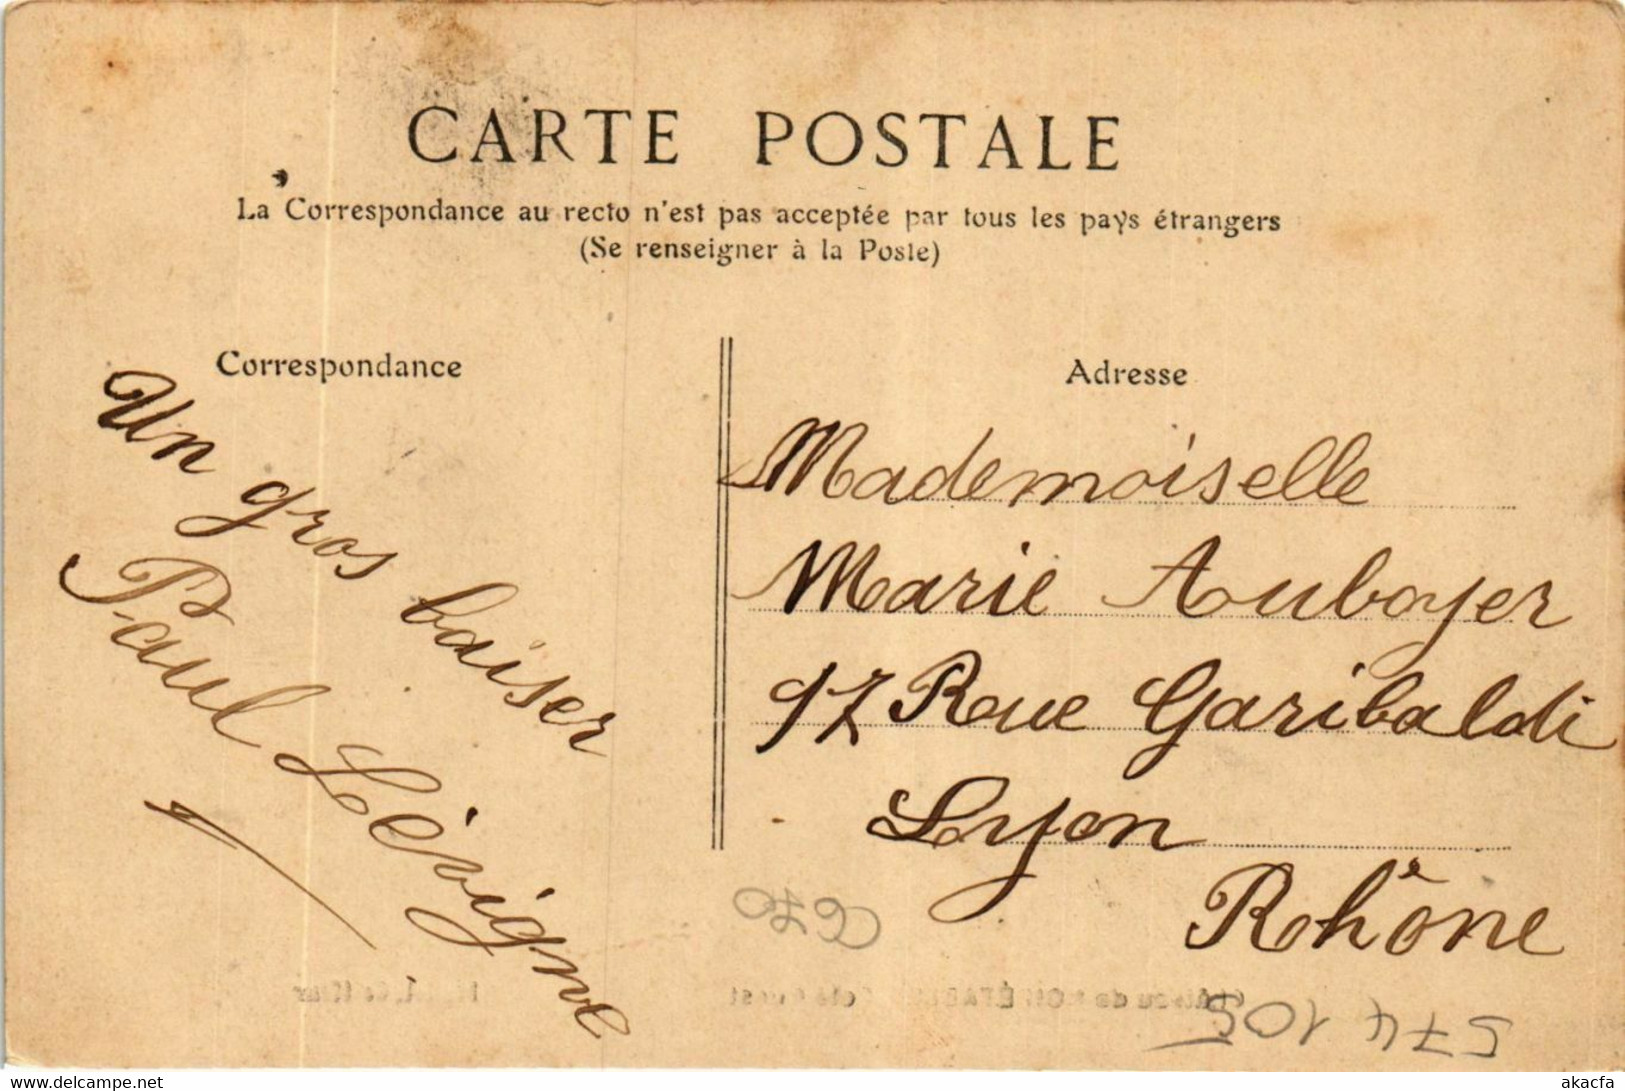 CARTE POSTALE
La Correspondance au recto n'est pas acceptée par tous les pays étrangers
(Se renseigner à la Poste)
Correspondance
Un gros baiser
Paul Lévigne
Adresse
Mademoiselle
Marie Auboyer
97 Rue Garibaldi
Lyon
Rhône
574 105
www.delcampe.net
akacfa